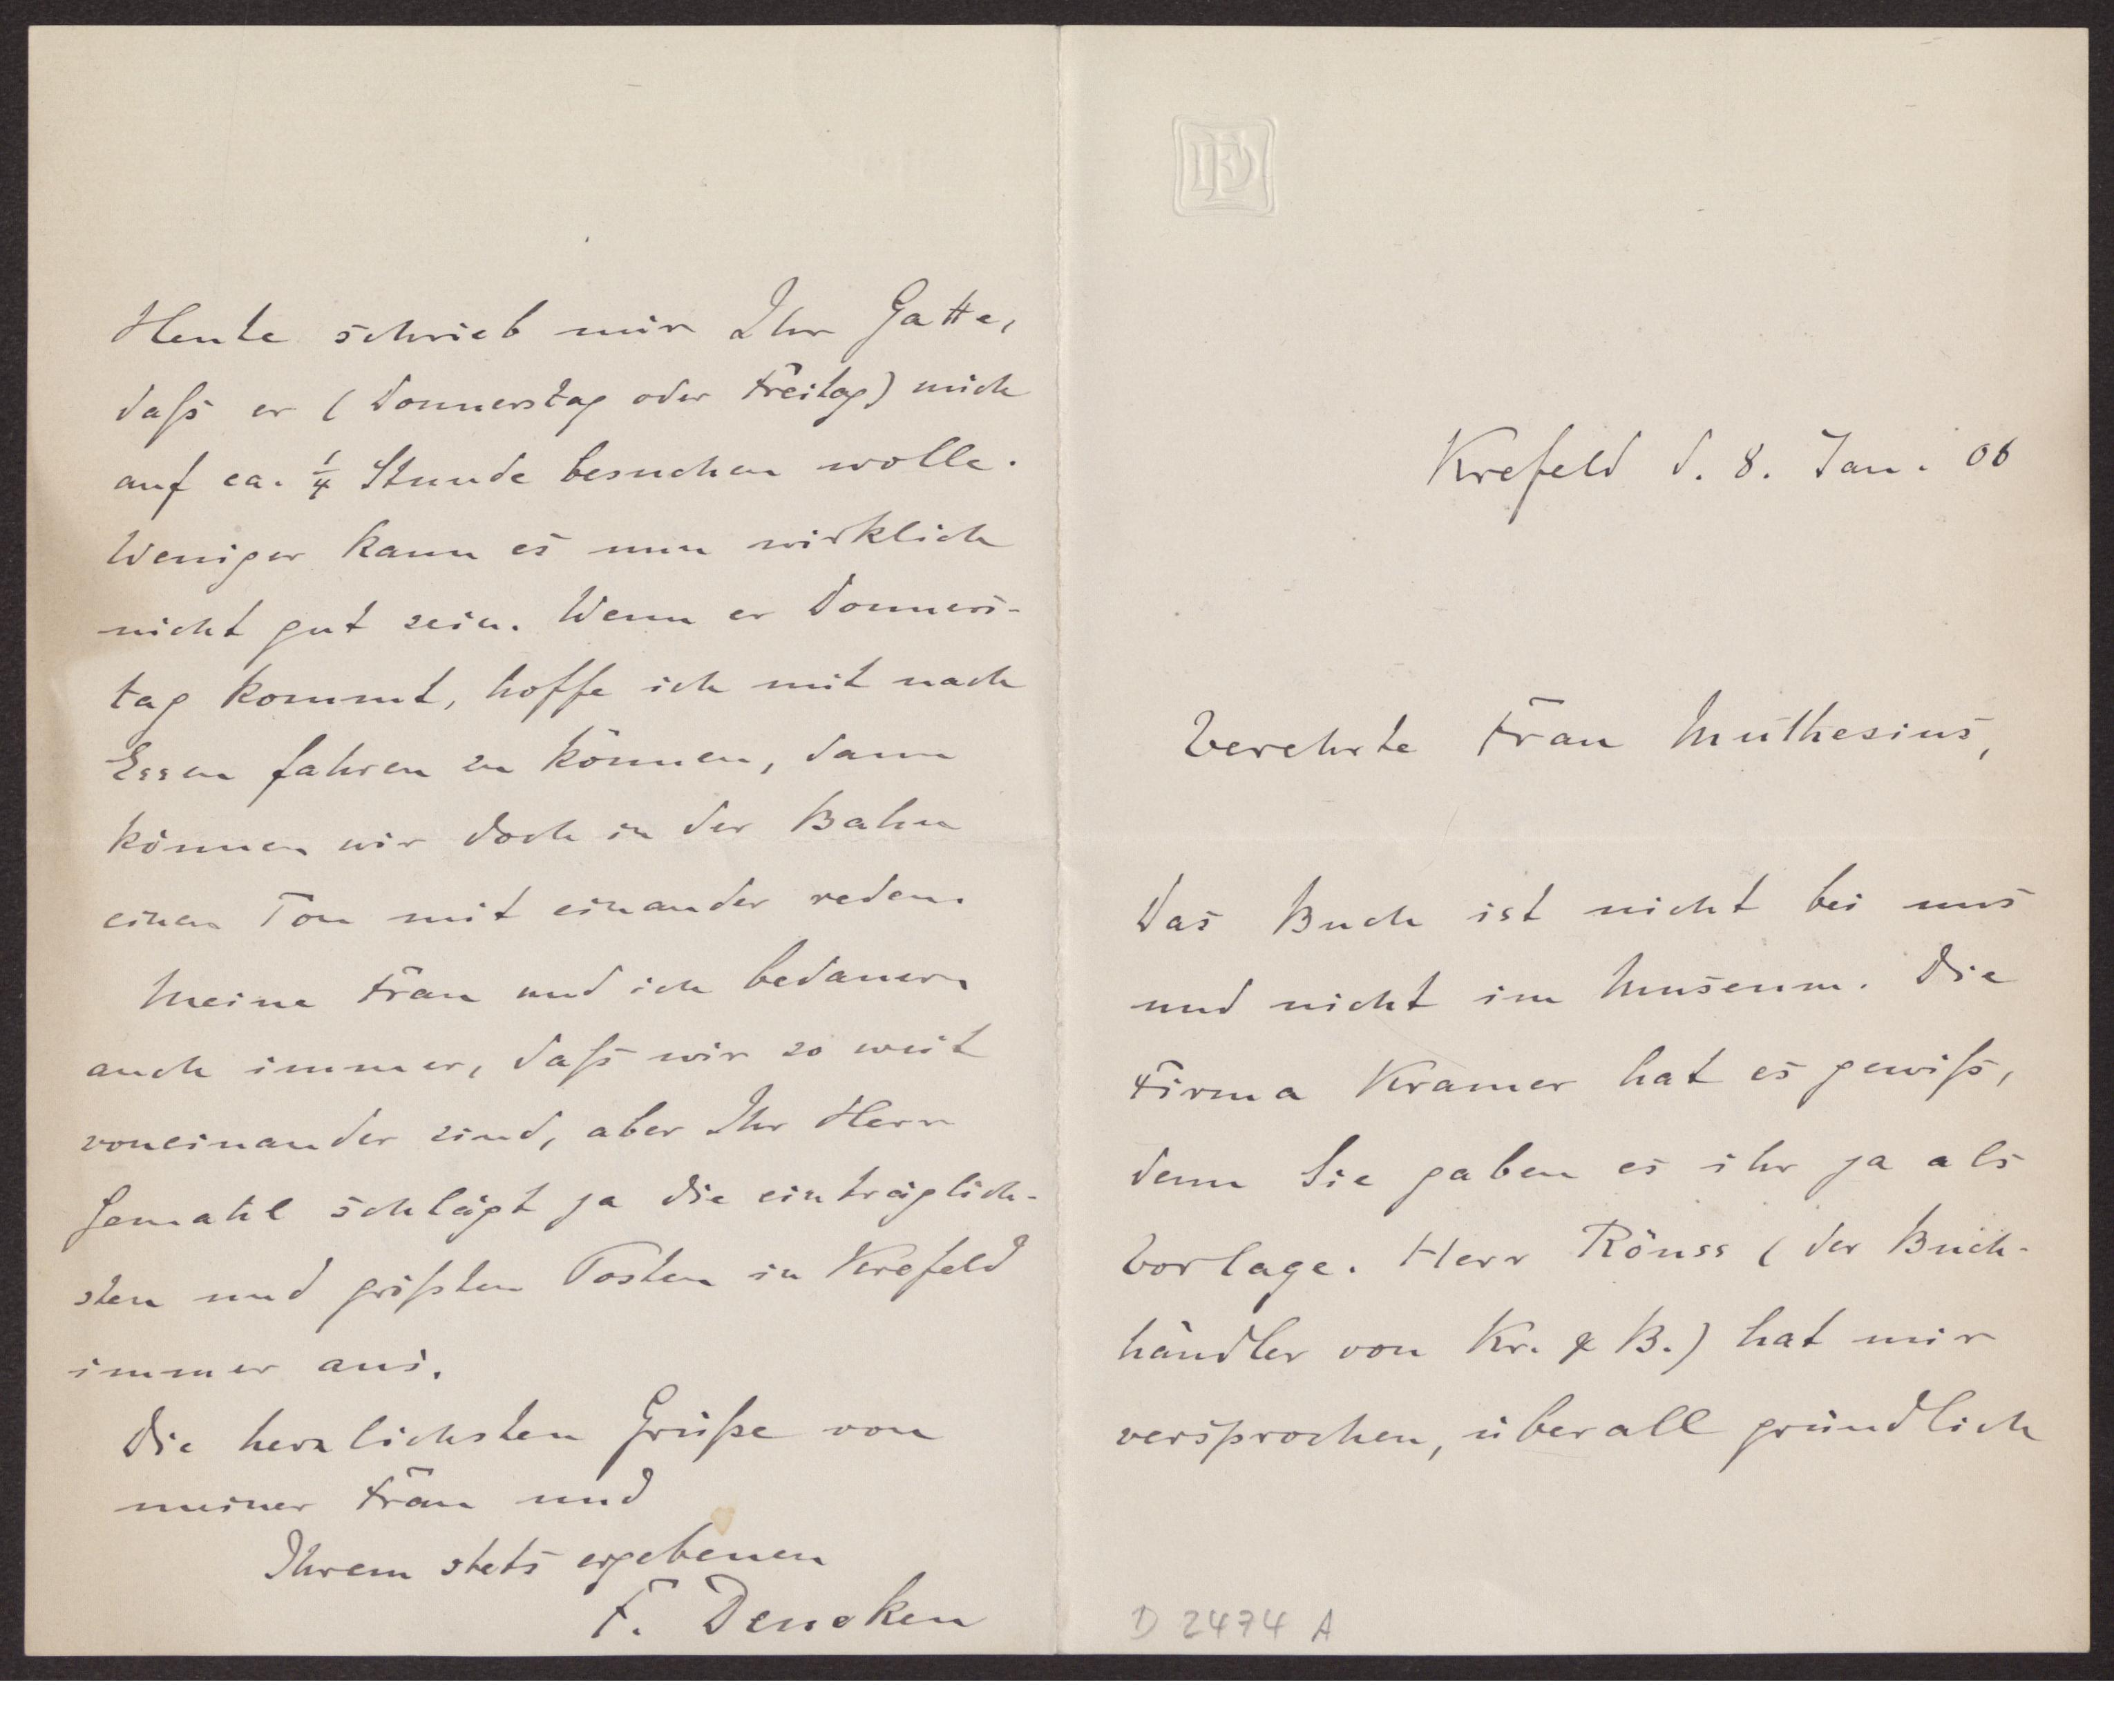 Krefeld d. 8. Jan. 06
Verehrte Frau Muthesius,
Das Buch ist nicht bei uns
und nicht im Museum. Die
Firma Kramer hat es gewiß,
denn Sie gaben es ihr ja als
Vorlage. Herr Rönss (der Buch-
händler von Kr. & B.) hat mir
versprochen, überall gründlich
D 2474 A
Heute schrieb mir Ihr Gatte,
daß er (Donnerstag oder Freitag) mich
auf ca. ¼ Stunde besuchen wolle.
Weniger kann es nun wirklich
nicht gut sein. Wenn er Donners-
tag kommt, hoffe ich mit nach
Essen fahren zu können, dann
können wir doch in der Bahn
einen Ton mit einander reden.
Meine Frau und ich bedauern
auch immer, daß wir so weit
voneinander sind, aber Ihr Herr
Gemahl schlägt ja die einträglich-
sten und größten Posten in Krefeld
immer aus.
Die herzlichsten Grüße von
meiner Frau und
Ihrem stets ergebenen
F. Deneken